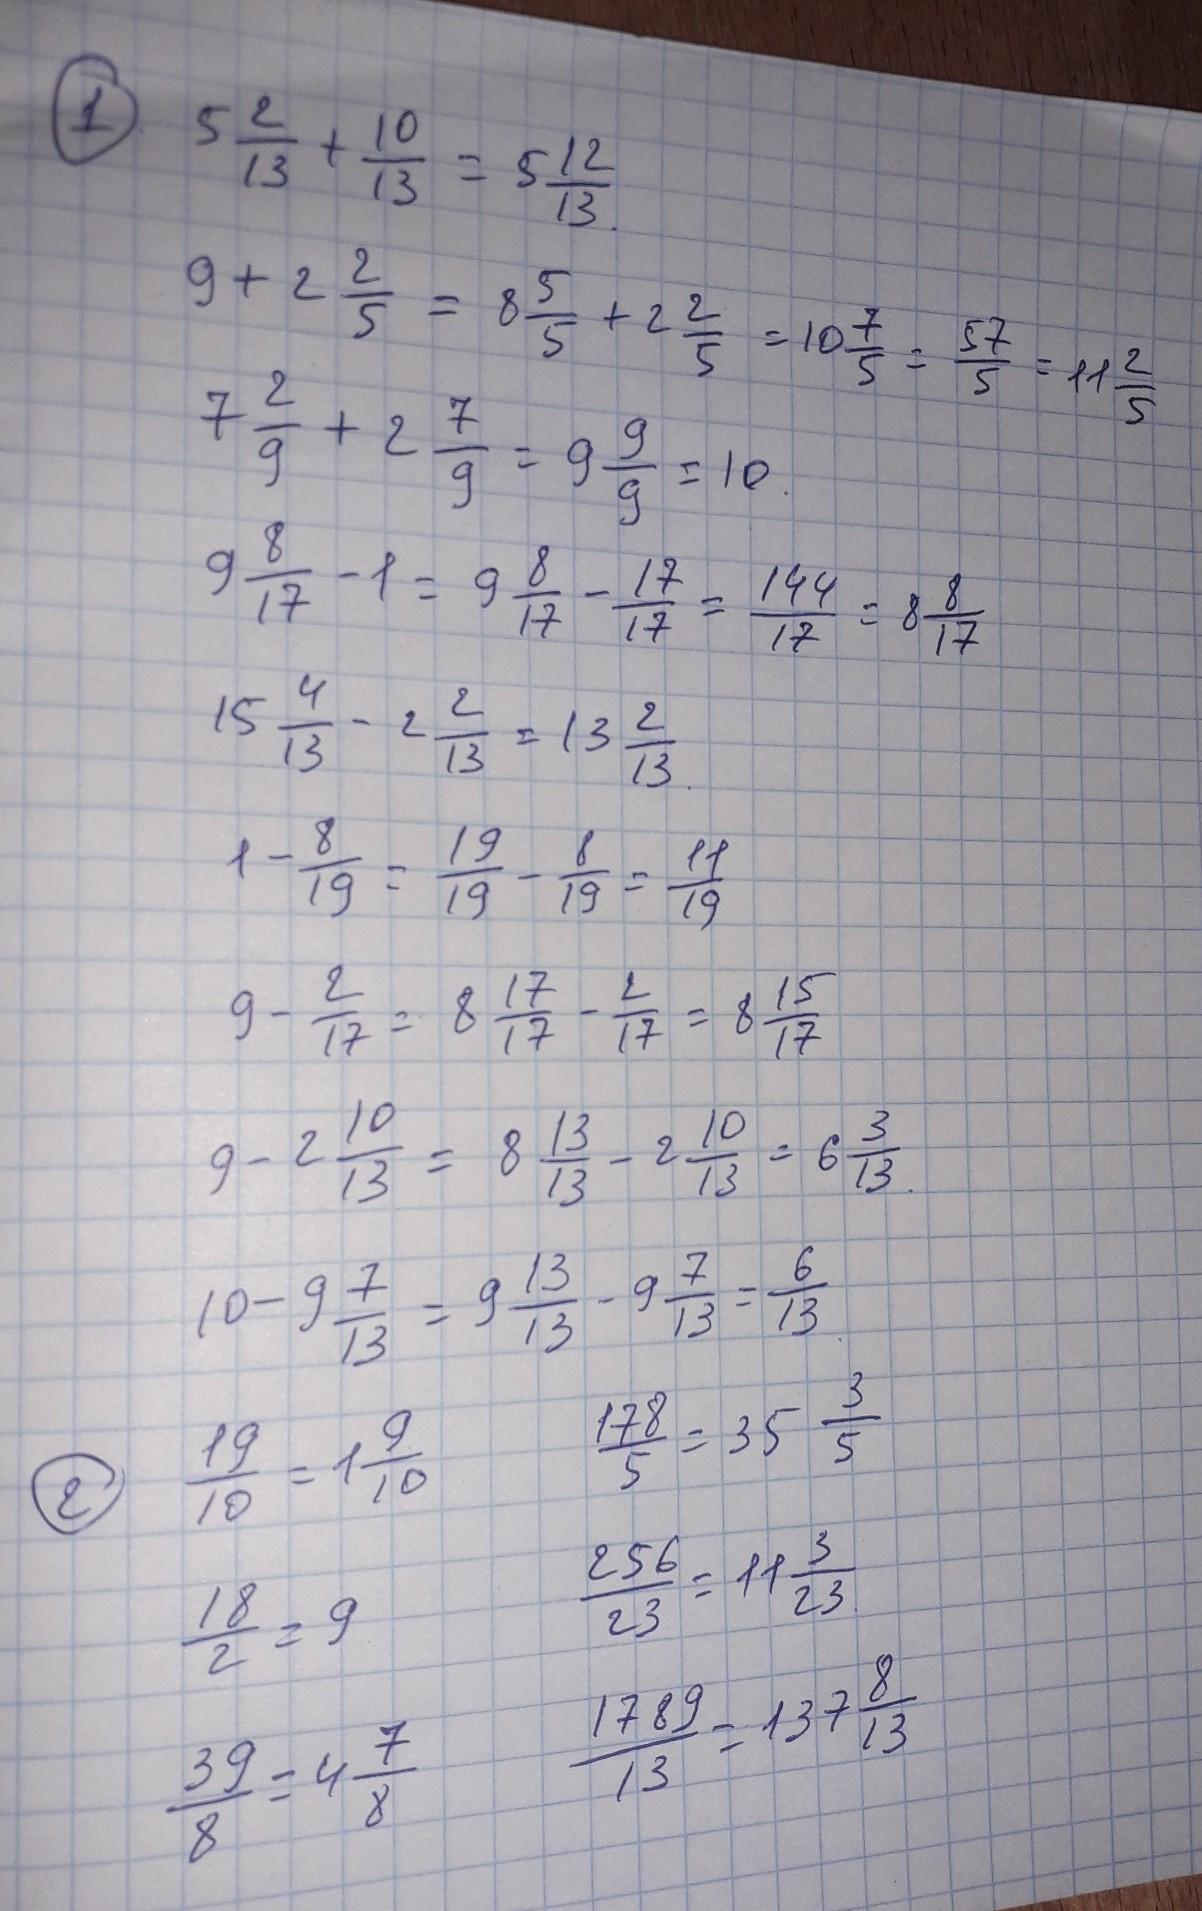 1 5 2/13 + 10/13 = 5 12/13.
9 + 2 2/5 = 8 5/5 + 2 2/5 = 10 7/5 = 57/5 = 11 2/5
7 2/9 + 2 7/9 = 9 9/9 = 10.
9 8/17 - 1 = 9 8/17 - 17/17 = 144/17 = 8 8/17
15 4/13 - 2 2/13 = 13 2/13.
1 - 8/19 = 19/19 - 8/19 = 11/19
9 - 2/17 = 8 17/17 - 2/17 = 8 15/17
9 - 2 10/13 = 8 13/13 - 2 10/13 = 6 3/13.
10 - 9 7/13 = 9 13/13 - 9 7/13 = 6/13.
2 19/10 = 1 9/10 178/5 = 35 3/5
18/2 = 9 256/23 = 11 3/23.
39/8 = 4 7/8 1789/13 = 137 8/13